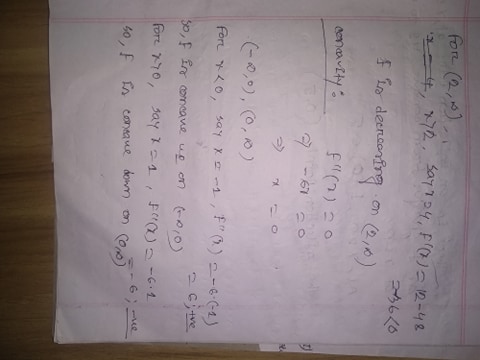 For (2, ∞),
x = 4, x>2, say x=4, f'(x) = 12-48
= -36<0
f is decreasing on (2, ∞)
concavity:
f''(x) = 0
⇒ -6x = 0
⇒ x = 0
(-∞, 0), (0, ∞)
For x<0, say x = -1, f''(x) = -6·(-1)
= 6; +ve
so, f is concave up on (-∞, 0)
For x>0, say x = 1, f''(x) = -6·1
= -6; -ve
so, f is concave down on (0, ∞)